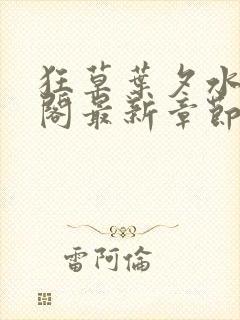 狂草葉夕水
閣最新章節
雷阿倫